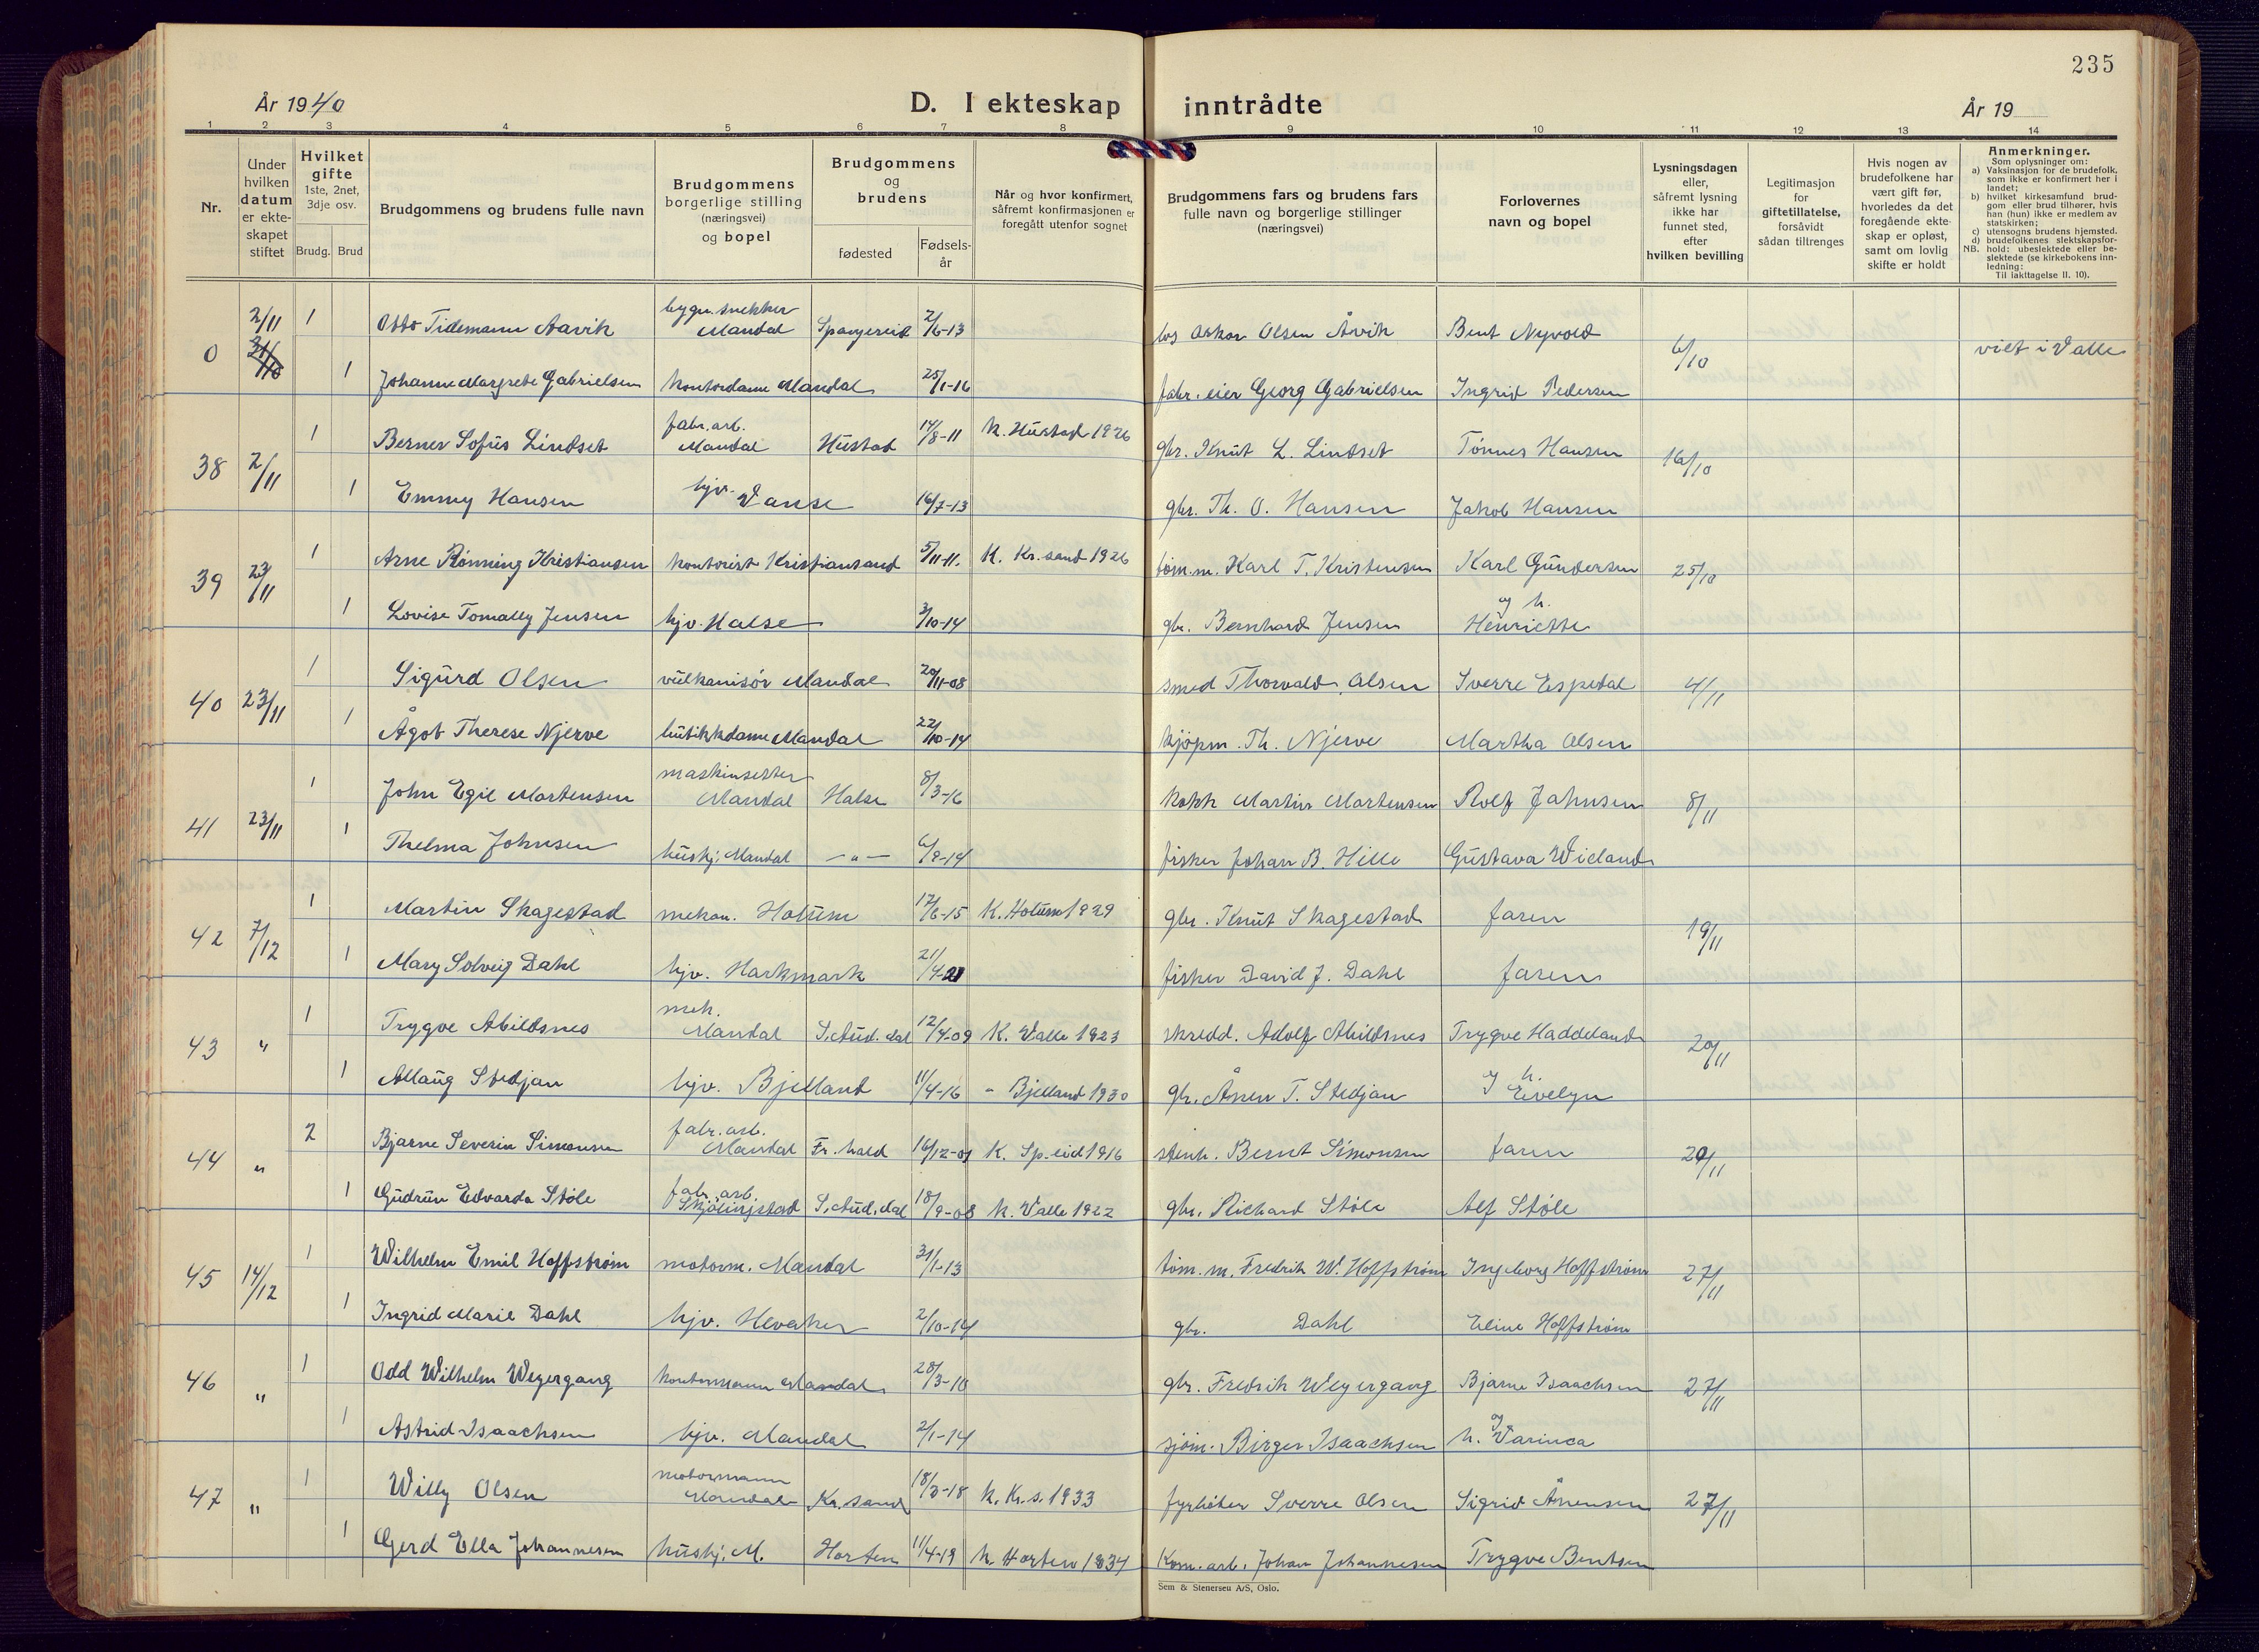 235
År 1940
D. I ekteskap inntrådte
År 19
1 2 3 4 5 6 7 8 9 10 11 12 13 14
Nr.
Under
hvilken
datum
er ekte-
skapet
stiftet
Hvilket
gifte
1ste, 2net,
3dje osv.
Brudg. Brud
Brudgommens og brudens fulle navn
Brudgommens
borgerlige stilling
(næringsvei)
og bopel
Brudgommens
og
brudens
fødested
Fødsels-
år
Når og hvor konfirmert,
såfremt konfirmasjonen er
foregått utenfor sognet
Brudgommens fars og brudens fars
fulle navn og borgerlige stillinger
(næringsvei)
Forlovernes
navn og bopel
Lysningsdagen
eller,
såfremt lysning
ikke har
funnet sted,
efter
hvilken bevilling
Legitimasjon
for
giftetillatelse,
forsåvidt
sådan tiltrenges
Hvis nogen av
brudefolkene har
vært gift før,
hvorledes da det
foregående ekte-
skap er opløst,
samt om lovlig
skifte er holdt
Anmerkninger.
Som oplysninger om:
a) Vaksinasjon for de brudefolk,
som ikke er konfirmert her i
landet;
b) hvilket kirkesamfund brud-
gom eller brud tilhører, hvis
han (hun) ikke er medlem av
statskirken;
c) utensogns brudens hjemsted.
d) brudefolkenes slektskapsfor-
NB. hold: ubeslektede eller be-
slektede (se kirkebokens inn-
ledning:
Til iakttagelse II. 10).
0 2/11 31/10 1 Otto Tidemann Aavik bygn. snekker Mandal Spangereid 2/6-13 los Oskar Olsen Åvik Bent Nyvold 6/10 viet i Valle
1 Johanne Margrete Gabrielsen kontordame Mandal 25/1-16 fabr. eier Georg Gabrielsen Ingrid Pedersen
38 2/11 1 Berner Sofus Lindset fabr. arb. Mandal Hustad 14/8-11 k. Hustad 1926 gbr. Knut L. Lindset Tønnes Hansen 16/10
1 Emmy Hansen hjv. Vanse 16/7-13 gbr. Th. O. Hansen Jakob Hansen
39 23/11 1 Arne Rønning Kristiansen kontorist Kristiansand 5/11-11. K. Kr.sand 1926 tøm.m. Karl T. Kristensen Karl Gundersen 25/10
1 Lovise Tomally Jensen hjv. Halse 3/10-14 gbr. Bernhard Jensen og h. Henriette
40 23/11 1 Sigurd Olsen vulkanisør Mandal 20/11-08 smed Thorvald Olsen Sverre Espedal 4/11
1 Ågot Therese Njerve butikkdame Mandal 22/10-14 kjøpm. Th. Njerve Martha Olsen
41 23/11 1 John Egil Martensen maskinsetter Mandal Halse 8/3-16 kokk Martin Martensen Rolf Jahnsen 8/11
1 Thelma Johnsen hushj. Mandal -"- 6/9-14 fisker Johan B. Hille Gustava Wieland
42 7/12 1 Martin Skagestad mekan. Holum 17/6-15 K. Holum 1929 gbr. Knut Skagestad faren 19/11
1 Mary Solveig Dahl hjv. Harkmark 21/4-21 fisker David J. Dahl faren
43 " 1 Trygve Abildsnes mek. Mandal S. Aud. dal 12/4-09 K. Valle 1923 skredd. Adolf Abildsnes Trygve Haddeland 20/11
1 Allaug Stedjan hjv. Bjelland 11/4-16 - Bjelland 1930 gbr. Ånen T. Stedjan og h. Eivelyn
44 " 2 Bjarne Severin Simonsen fabr. arb. Mandal Fr. hald 16/12-01 K. Sp. eid 1916 stenh. Bernt Simonsen faren 20/11
1 Gudrun Edvarda Støle fabr. arb. Skjølingstad S. Aud. dal 18/9-08 K. Valle 1922 gbr. Richard Støle Alf Støle
45 14/12 1 Wilhelm Emil Hoffstrøm motorm. Mandal 31/1-13 tøm. m. Fredrik W. Hoffstrøm Ingeborg Hoffstrøm 27/11
1 Ingrid Marie Dahl hjv. Hevaker 2/10-14 gbr. Dahl Eline Hoffstrøm
46 " 1 Odd Wilhelm Weyergang kontormann Mandal 28/3-10 gbr. Fredrik Weyergang Bjarne Isaachsen 27/11
1 Astrid Isaachsen hjv. Mandal 2/1-14 sjøm. Birger Isaachsen og h. Varinca
47 " 1 Willy Olsen motormann Mandal Kr. sand 18/3-18 k. Kr.s. 1933 fyrbøter Sverre Olsen Sigrid Ånensen 27/11
1 Gerd Ella Johannesen hushj. M. Horten 11/4-19 k. Horten 1934 Kom. arb. Johan Johannesen Trygve Bentsen
Sem & Stenersen A/S, Oslo.